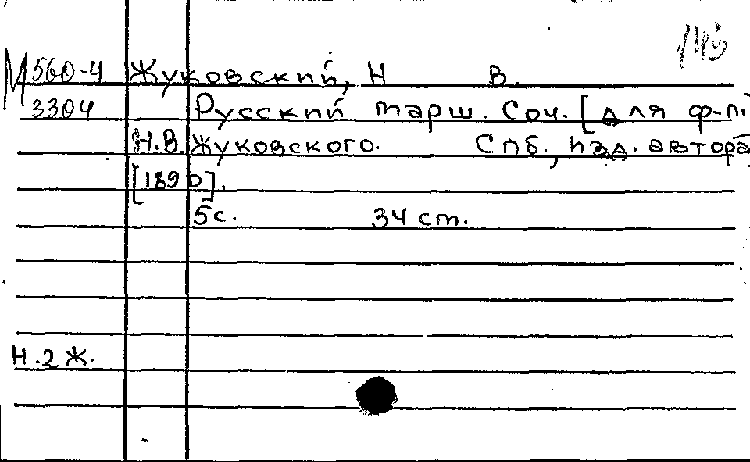 М 560-4 Жуковский, Н В.
3304 Русский марш. Соч. [для ф-п.]
Н.В. Жуковского. Спб., изд. автора
[1890].
5с. 34 ст.
Н.2 Ж.